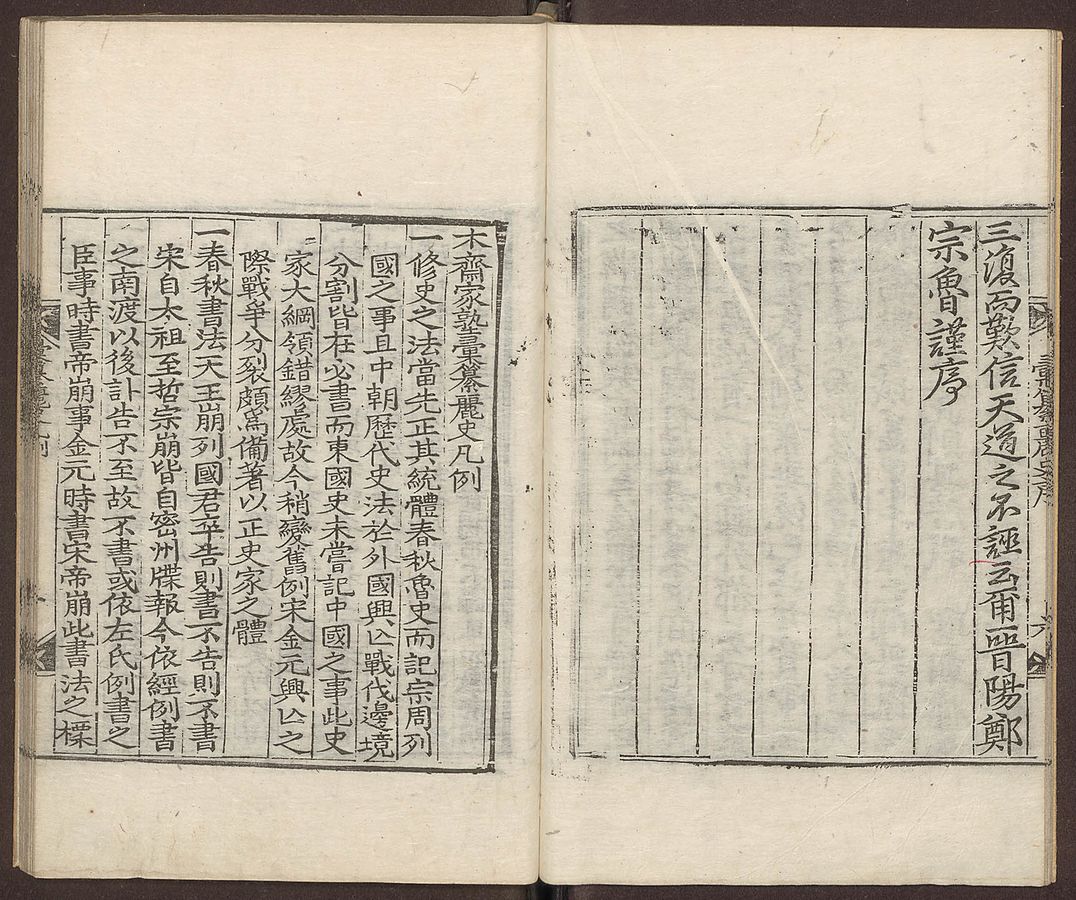 三復而歎信天道之不誣云爾晋陽鄭
宗魯謹序
木齋家塾彙纂麗史凡例
一修史之法當先正其統體春秋魯史而記宗周列
國之事且中朝歷代史法於外國興亾戰伐邊境
分割皆在必書而東國史未嘗記中國之事此史
家大綱領錯繆處故今稍變舊例宋金元興亾之
際戰爭分裂頗爲備著以正史家之體
一春秋書法天王崩列國君卒告則書不告則不書
宋自太祖至哲宗崩皆自密州牒報今依經例書
之南渡以後訃告不至故不書或依左氏例書之
臣事時書帝崩事金元時書宋帝崩此書法之標